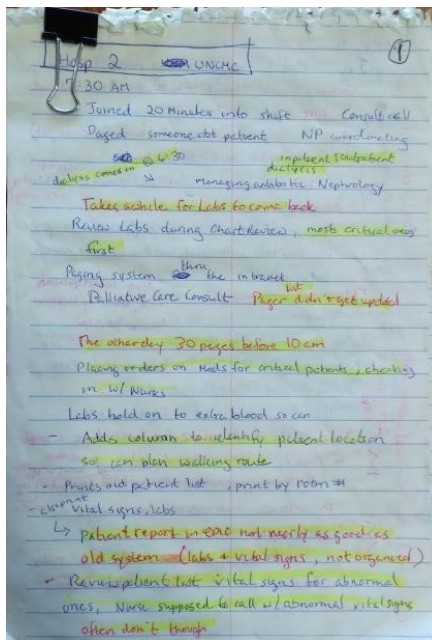 Hosp 2 UNCMC
1
7:30 AM
Joined 20 Minutes into shift Consult call
Paged someone abt patient NP coordinating
6:30 inpatient outpatient
dialysis comes in dialysis
managing antibiotic Nephrology
Takes awhile for Labs to come back
Review Labs during Chart Review, most critical ones
first
Paging system thru the intranet
Palliative Care Consult Pager list didn't get updated
The other day 30 pages before 10am
Placing orders on Meds for critical patients, checking
in w/ Nurses
Labs hold on to extra blood so can
- Adds column to identify patient location
so can plan walking route
- Prints out patient list, print by room #
- Vital signs, labs
↳ Patient report in epic not nearly as good as
old system (labs + vital signs, not organized)
- Review patient list vital signs for abnormal
ones, Nurse supposed to call w/ abnormal vital signs
often don't though